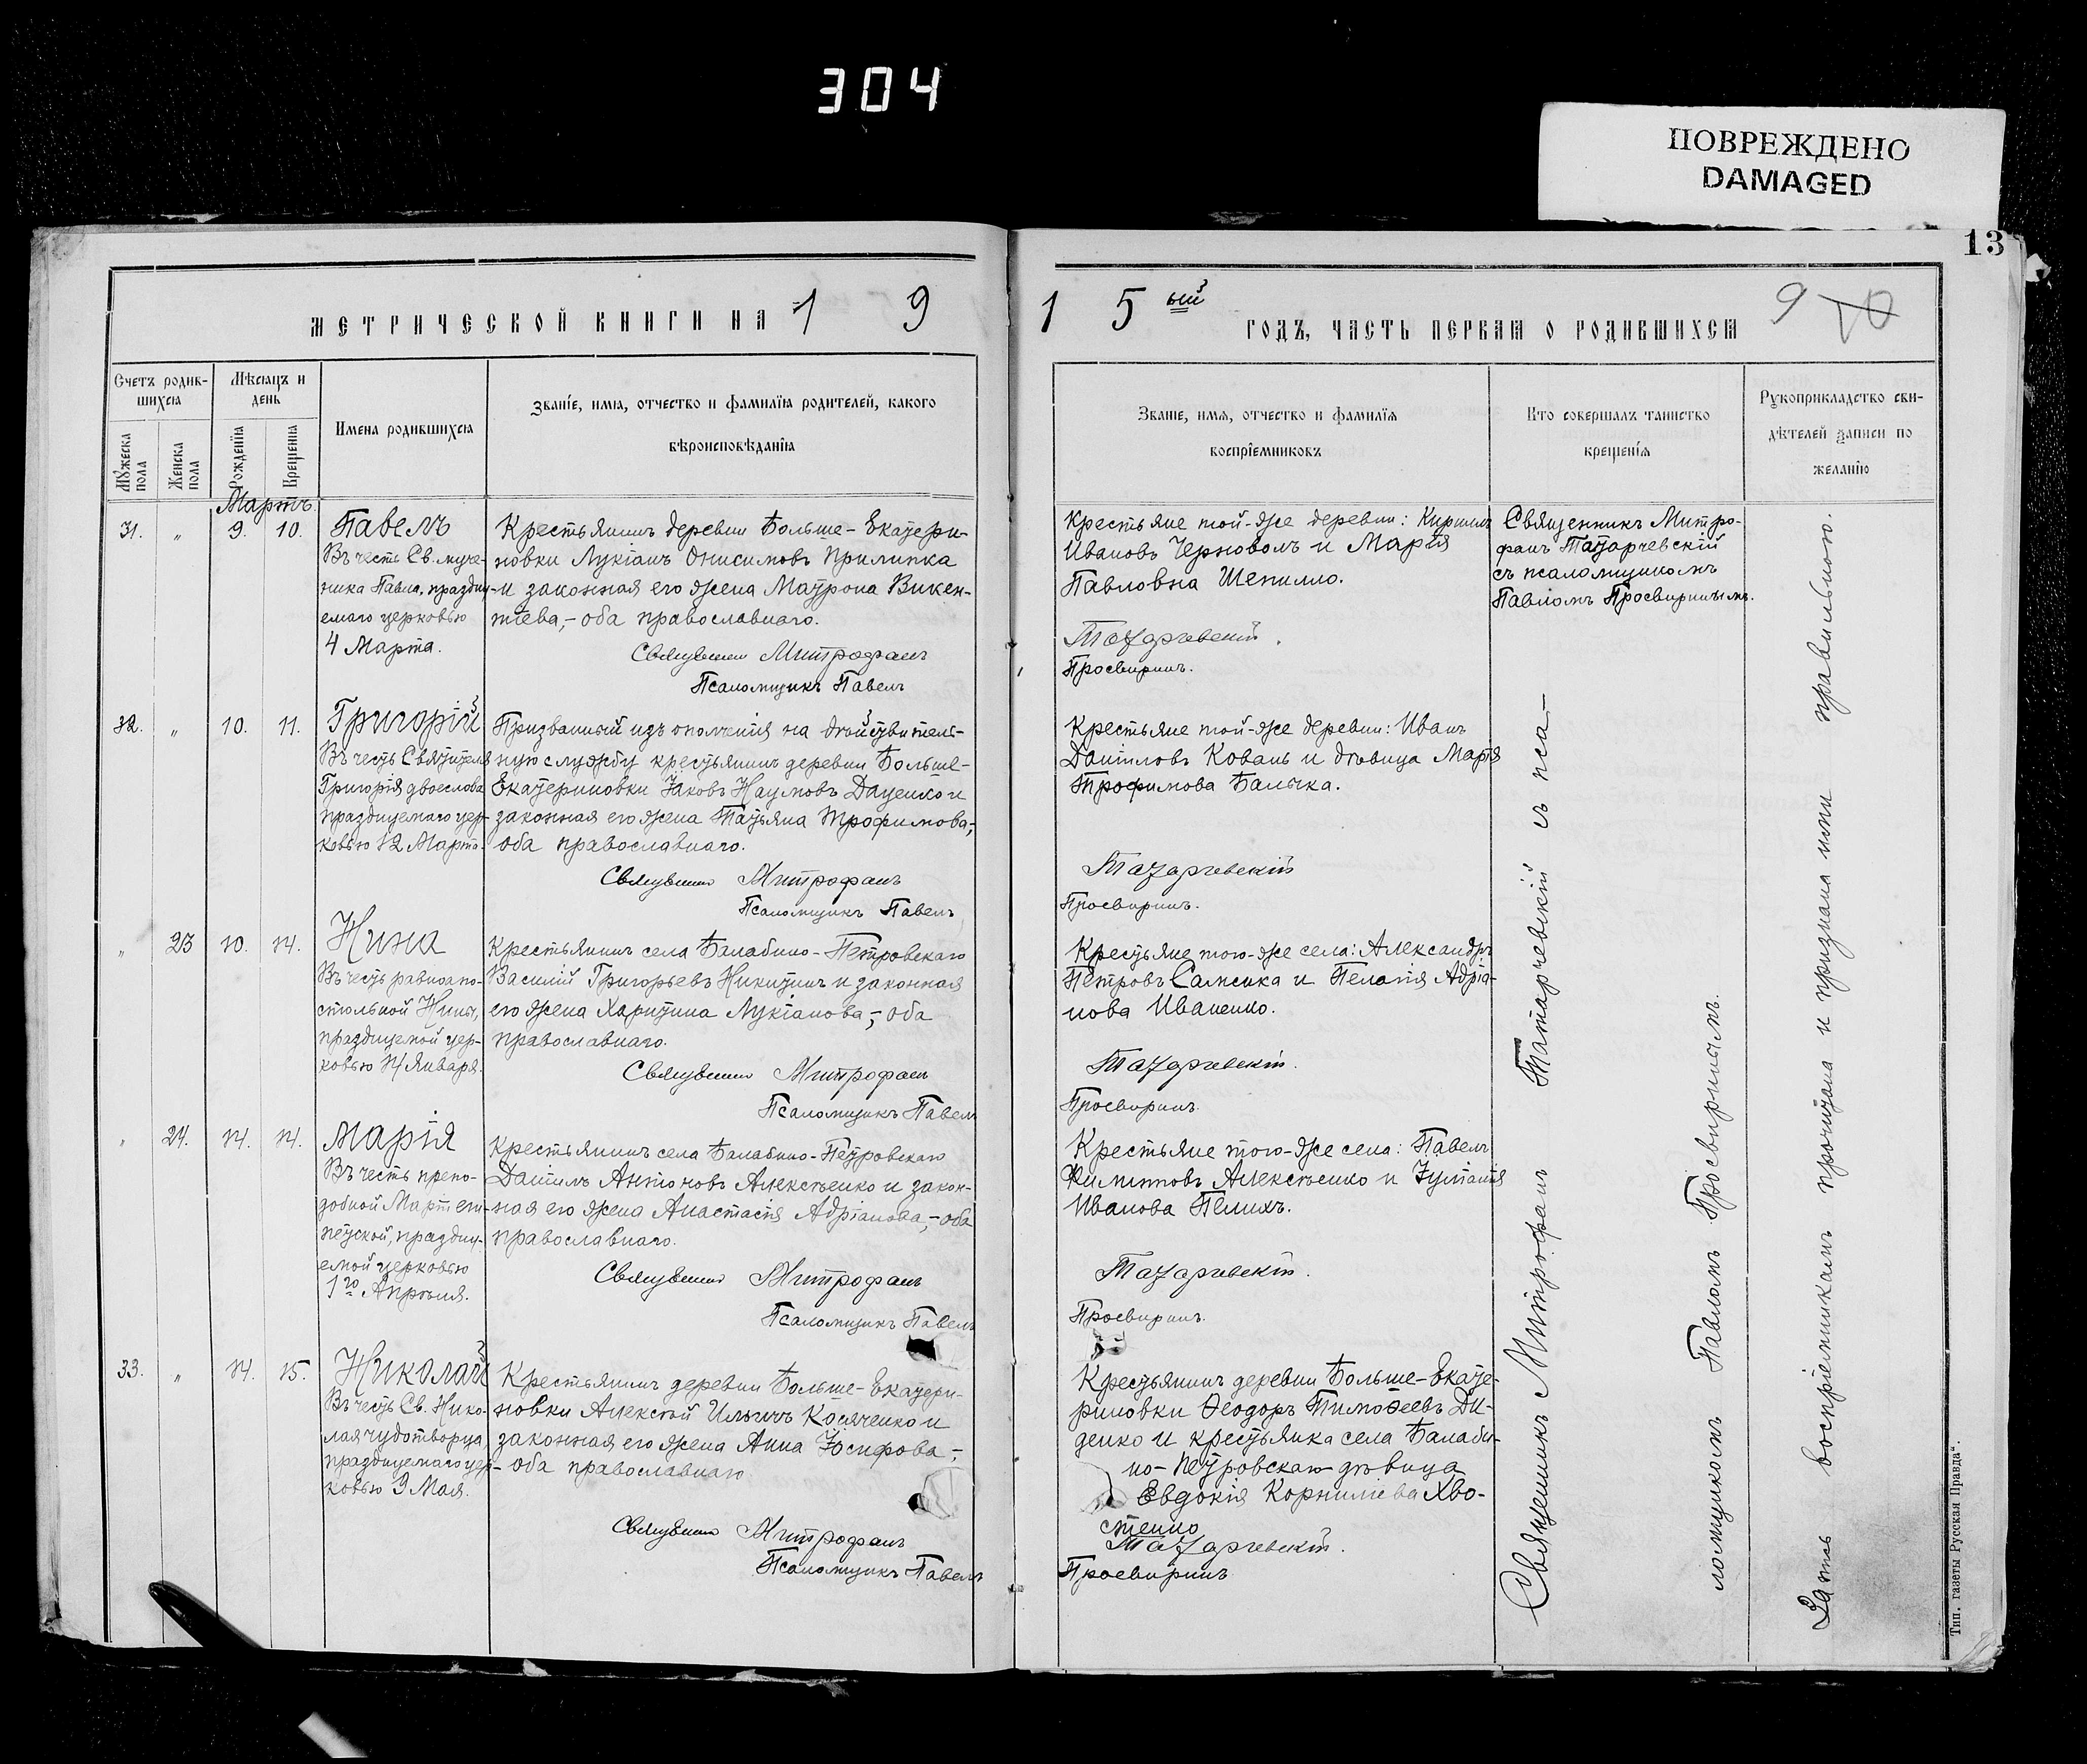 304
ПОВРЕЖДЕНО
DAMAGED
13
МЕТРИЧЕСКОЙ КНИГИ НА 19
15ый ГОДЪ, ЧАСТЬ ПЕРВАЯ О РОДИВШИХСЯ
9 10
Счетъ родив-
шихся
Мѣсяцъ и
день
Имена родившихся
Званіе, имя, отчество и фамилія родителей, какого
вѣроисповѣданія
Мужеска пола
Женска пола
Рожденія
Крещенія
Званіе, имя, отчество и фамилія
воспріемниковъ
Кто совершалъ таинство
крещенія
Рукоприкладство сви-
дѣтелей записи по
желанію
Мартъ
31. " 9. 10.
Павелъ
Въ честь Св. муче-
ника Павла, праздну-
емаго церковью
4 Марта.
Крестьянинъ деревни Больше-Екатери-
новки Лукіанъ Онисимовъ Прилипка
и законная его жена Матрона Викен-
тіева,- оба православнаго.
Священникъ Митрофанъ
Псаломщикъ Павелъ
Крестьяне той-же деревни: Кириллъ
Ивановъ Черноволъ и Марія
Павловна Шепилло.
Татарчевскій.
Просвиринъ.
Священникъ Митро-
фанъ Татарчевскій
съ псаломщикомъ
Павломъ Просвиринымъ.
32. " 10. 11.
Григорій
Въ честь Святителя
Григорія двоеслова
празднуемаго цер-
ковью 12 Марта.
Призванный изъ ополченія на дѣйствитель-
ную службу крестьянинъ деревни Больше-
Екатериновки Іаковъ Наумовъ Даценко и
законная его жена Татьяна Трофимова,-
оба православнаго.
Священникъ Митрофанъ
Псаломщикъ Павелъ
Крестьяне той-же деревни: Иванъ
Даніиловъ Коваль и дѣвица Марія
Трофимова Балычка.
Татарчевскій
Просвиринъ.
" 23 10. 14.
Нина
Въ честь равноапо-
стольной Нины,
празднуемой цер-
ковью 14 Января.
Крестьянинъ села Балабино-Петровскаго
Василій Григорьевъ Никитинъ и законная
его жена Харитина Лукіанова,- оба
православнаго.
Священникъ Митрофанъ
Псаломщикъ Павелъ
Крестьяне того-же села: Александръ
Петровъ Самсика и Пелагія Адріа-
нова Иваненко.
Татарчевскій.
Просвиринъ
" 24. 14. 14.
Марія
Въ честь препо-
добной Маріи еги-
петской, праздну-
емой церковью
1го Апрѣля.
Крестьянинъ села Балабино-Петровскаго
Даніилъ Антоновъ Алексѣенко и закон-
ная его жена Анастасія Адріанова,- оба
православнаго.
Священникъ Митрофанъ
Псаломщикъ Павелъ
Крестьяне того-же села: Павелъ
Филипповъ Алексѣенко и Іуліанія
Иванова Пелихъ.
Татарчевскій.
Просвиринъ.
33. " 14. 15.
Николай
Въ честь Св. Нико-
лая чудотворца
празднуемаго цер-
ковью 9 Мая.
Крестьянинъ деревни Больше-Екатери-
новки Алексѣй Ильичъ Косяченко и
законная его жена Анна Іосифова,-
оба православнаго
Священникъ Митрофанъ
Псаломщикъ Павелъ
Крестьянинъ деревни Больше-Екате-
риновки Ѳеодоръ Тимоѳеевъ Ди-
денко и крестьянка села Балаби-
но-Петровскаго дѣвица
Евдокія Корниліева Хво-
стенко
Татарчевскій.
Просвиринъ
Священникъ Митрофанъ Татарчевскій съ пса-
ломщикомъ Павломъ Просвиринымъ.
Запись воспріемникамъ прочитана и признана ими правильною.
Тип. газеты „Русская Правда“.